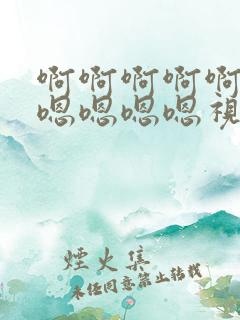 啊啊啊啊啊
嗯嗯嗯嗯視
煙火集
未任同意禁止转载